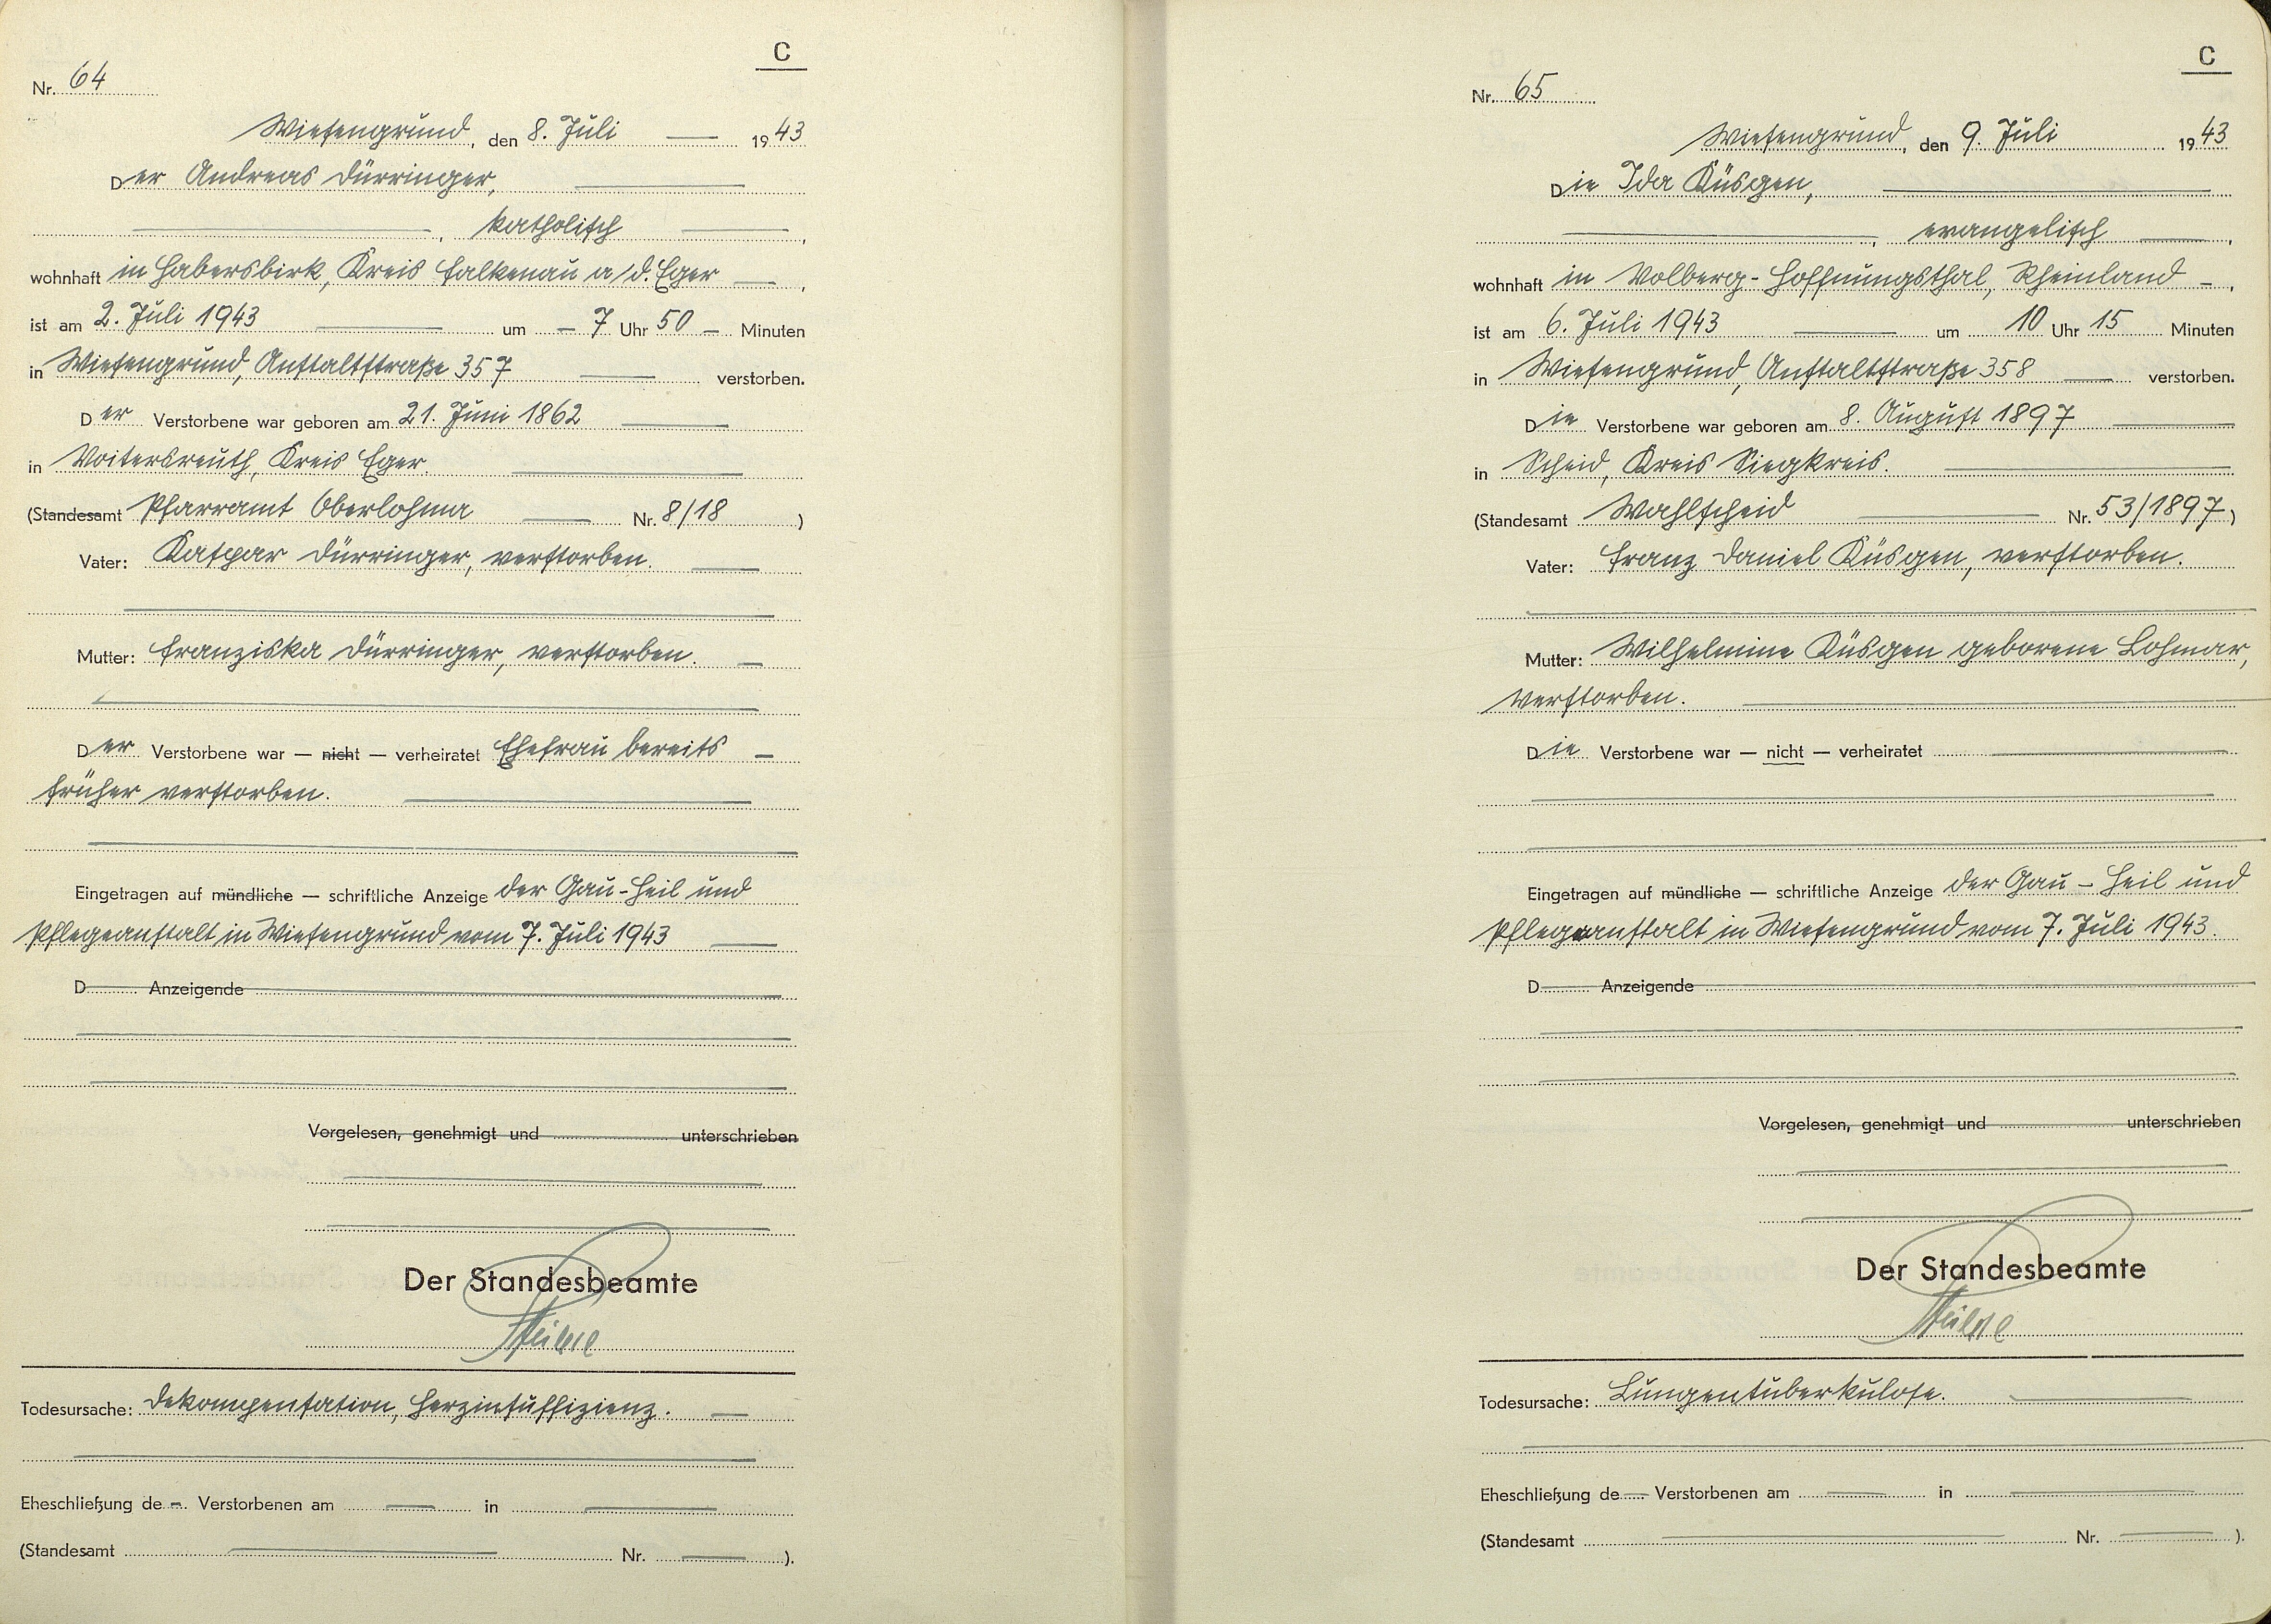 C
Nr. 64
Wiesengrund, den 8. Juli 1943
Der Andreas Dürringer,
, katholisch,
wohnhaft in Habersbirk, Kreis Falkenau a/d. Eger,
ist am 2. Juli 1943 um 7 Uhr 50 Minuten
in Wiesengrund, Anstaltstraße 357 verstorben.
Der Verstorbene war geboren am 21. Juni 1862
in Voitersreuth, Kreis Eger.
(Standesamt Pfarramt Oberlohma Nr. 8/18)
Vater: Kaspar Dürringer, verstorben.
Mutter: Franziska Dürringer, verstorben.
Der Verstorbene war — nicht — verheiratet Ehefrau bereits
früher verstorben.
Eingetragen auf mündliche — schriftliche Anzeige der Gau-Heil und
Pflegeanstalt in Wiesengrund vom 7. Juli 1943
D Anzeigende
Vorgelesen, genehmigt und unterschrieben
Der Standesbeamte
Todesursache: Dekompensation, Herzinsuffizienz.
Eheschließung de Verstorbenen am in
(Standesamt Nr. ).
C
Nr. 65
Wiesengrund, den 9. Juli 1943
Die Ida Küsgen,
, evangelisch,
wohnhaft in Volberg-Hoffnungsthal, Rheinland,
ist am 6. Juli 1943 um 10 Uhr 15 Minuten
in Wiesengrund, Anstaltstraße 358 verstorben.
Die Verstorbene war geboren am 8. August 1897
in Scheid, Kreis Siegkreis.
(Standesamt Wahlscheid Nr. 53/1897)
Vater: Franz Daniel Küsgen, verstorben.
Mutter: Wilhelmine Küsgen geborene Lohmar,
verstorben.
Die Verstorbene war — nicht — verheiratet
Eingetragen auf mündliche — schriftliche Anzeige der Gau-Heil und
Pflegeanstalt in Wiesengrund vom 7. Juli 1943.
D Anzeigende
Vorgelesen, genehmigt und unterschrieben
Der Standesbeamte
Todesursache: Lungentuberkulose.
Eheschließung de Verstorbenen am in
(Standesamt Nr. ).